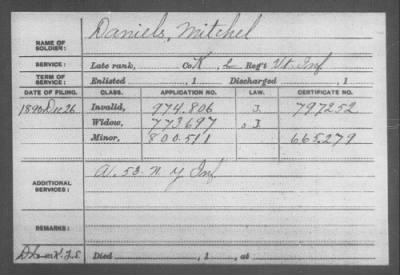 NAME OF SOLDIER: Daniels, Mitchel
SERVICE: Late rank, Co. K, 2 Reg't Vt. Inf
TERM OF SERVICE: Enlisted , 1 Discharged , 1
DATE OF FILING. CLASS. APPLICATION NO. LAW. CERTIFICATE NO.
1890 Dec 26 Invalid, 974.806 J. 797252
Widow, 773697 J.
Minor, 800.511 665.279
ADDITIONAL SERVICES: A. 53. N. Y. Inf
REMARKS:
Died , 1 , at